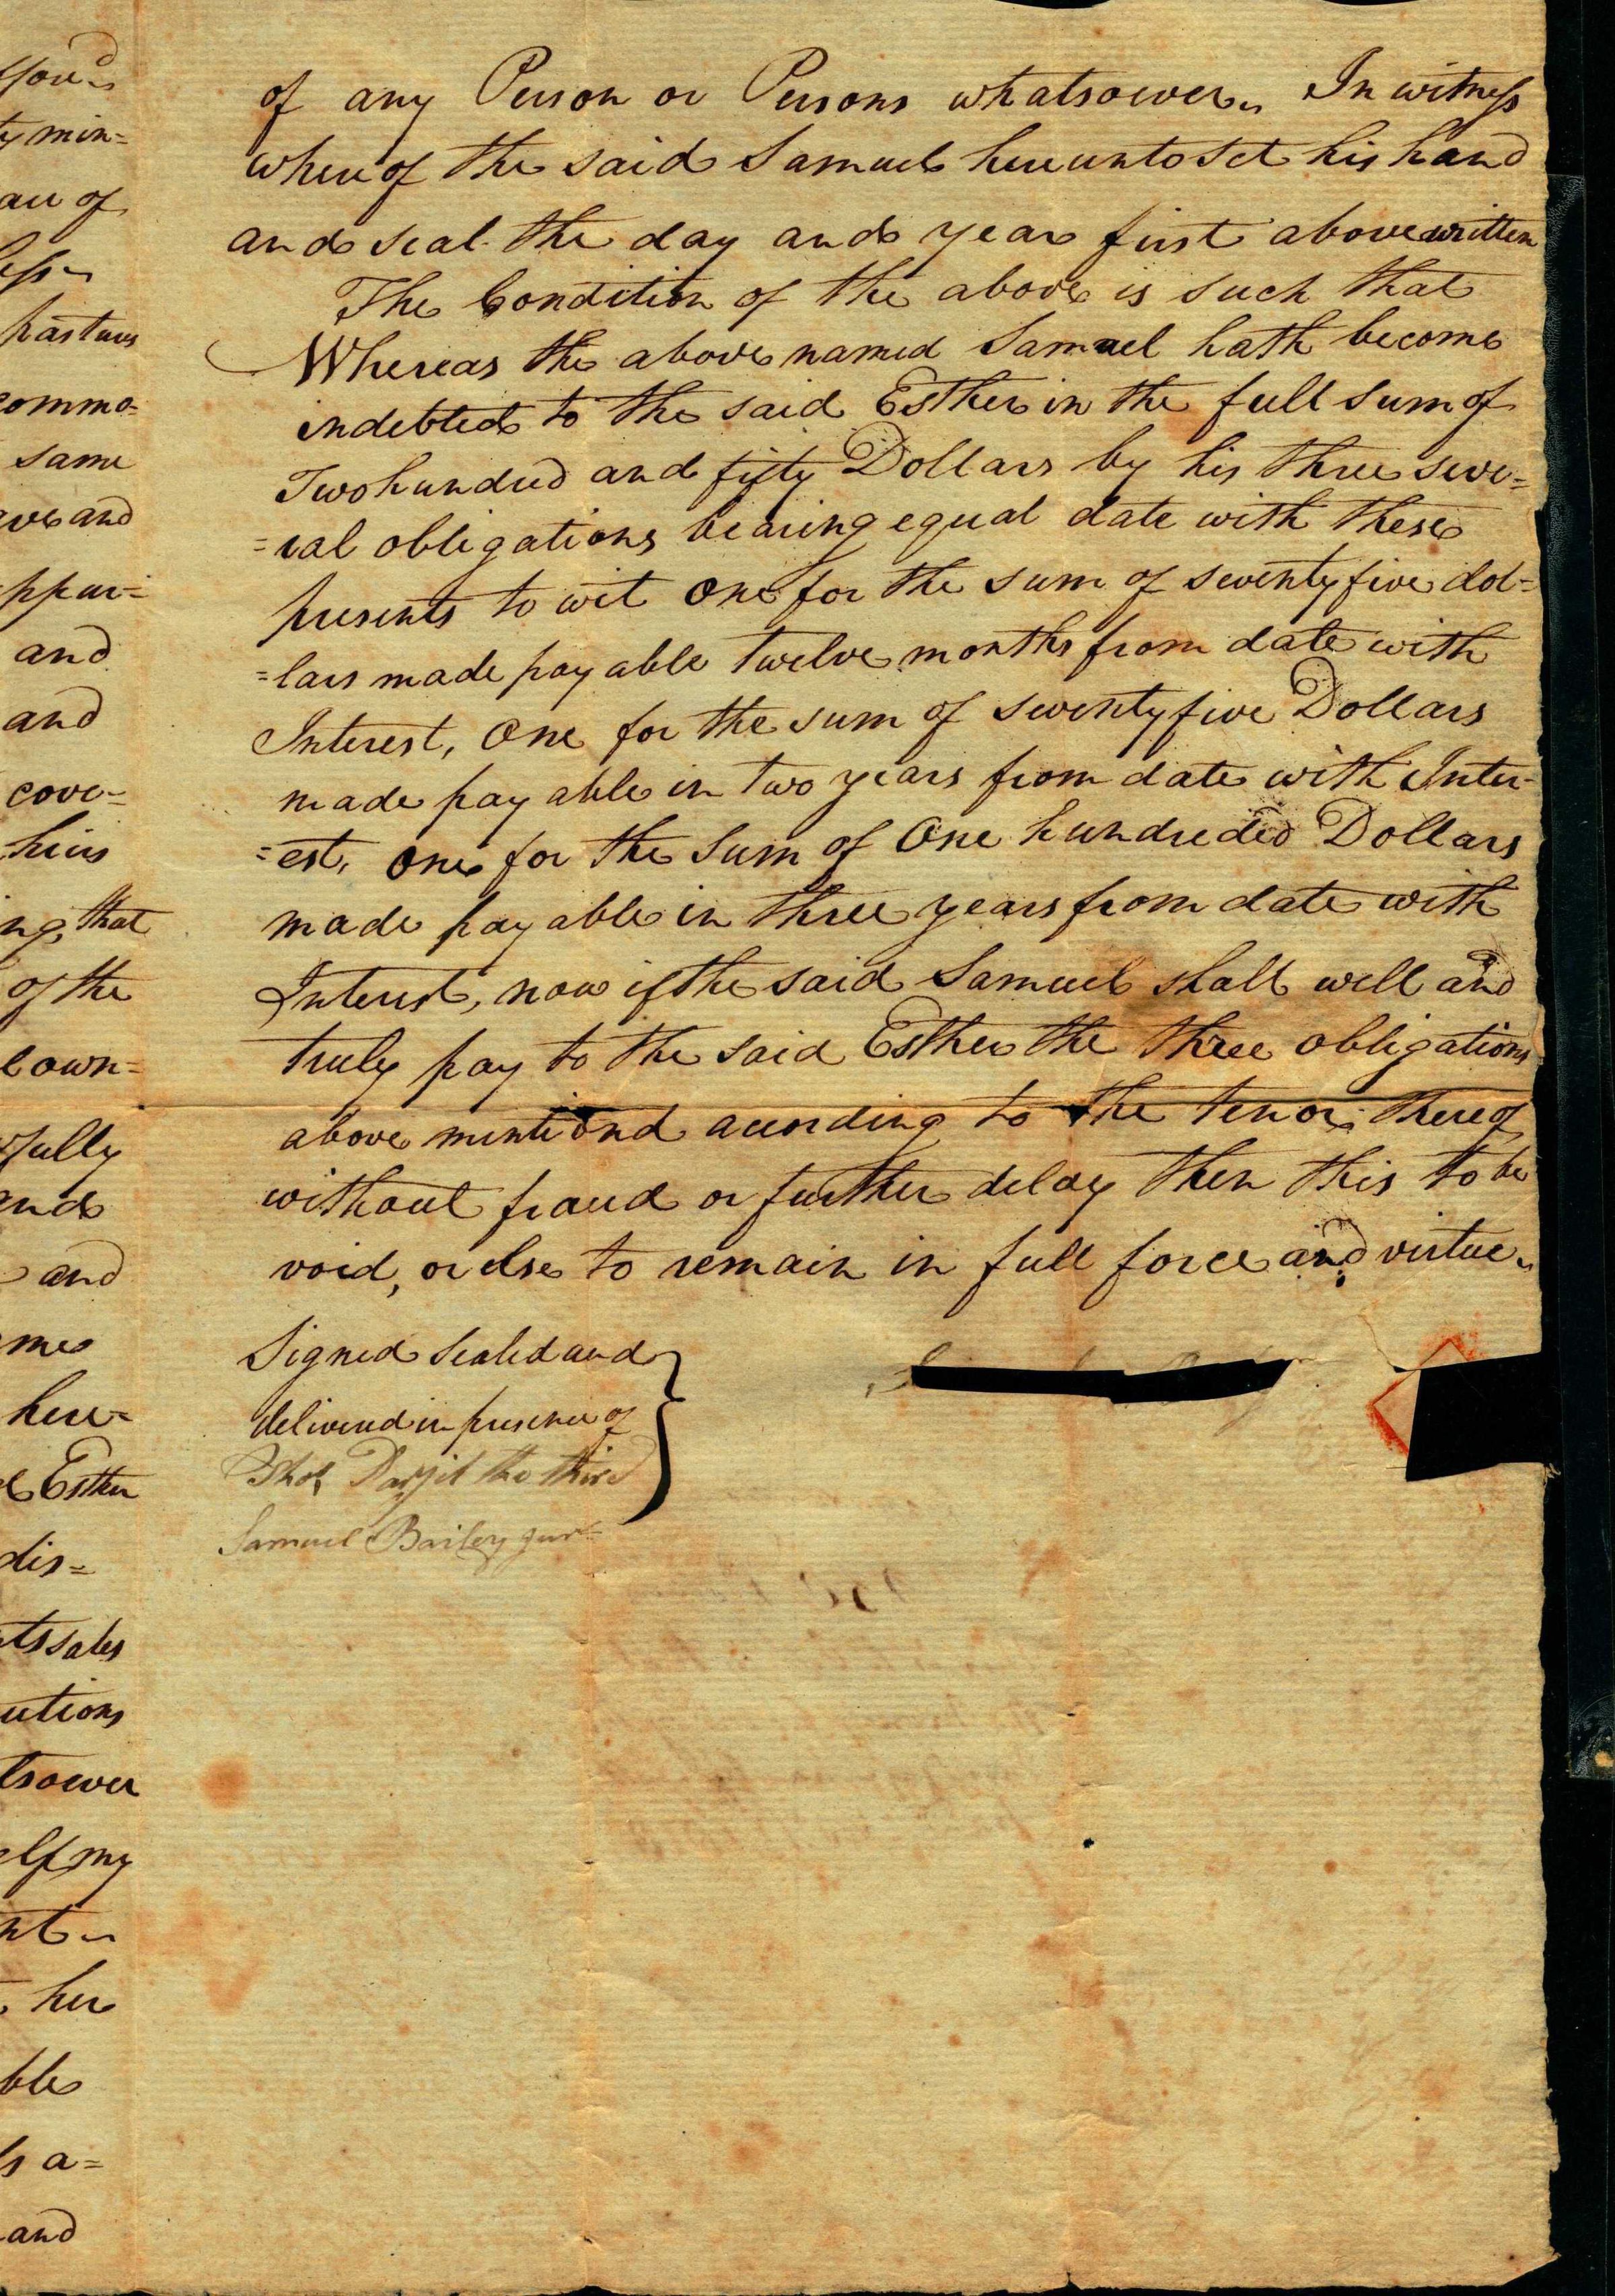 you d
ty min=
au of
less
pastures
commo=
same
ve and
ppur=
and
and
cove=
heirs
ng that
of the
l own=
fully
and
and
mes
here=
Esther
dis=
ts sales
utions
tsoever
elf my
nt
her
ble
s a=
and
of any Person or Persons whatsoever. In witness
whereof the said Samuel hereunto set his hand
and seal the day and year first above written
The Condition of the above is such that
Whereas the above named Samuel hath become
indebted to the said Esther in the full sum of
Two hundred and fifty Dollars by his three seve=
=ral obligations bearing equal date with these
presents to wit one for the sum of seventy five dol=
=lars made payable twelve months from date with
Interest, One for the sum of seventy five Dollars
made payable in two years from date with Inter=
=est, one for the Sum of One hundreded Dollars
made payable in three years from date with
Interest, now if the said Samuel shall well and
truly pay to the said Esther the three obligations
above mentiond according to the tenor thereof
without fraud or further delay then this to be
void, or else to remain in full force and virtue
Signed Sealed and
delivered in presence of
the third
Samuel Bailey jun